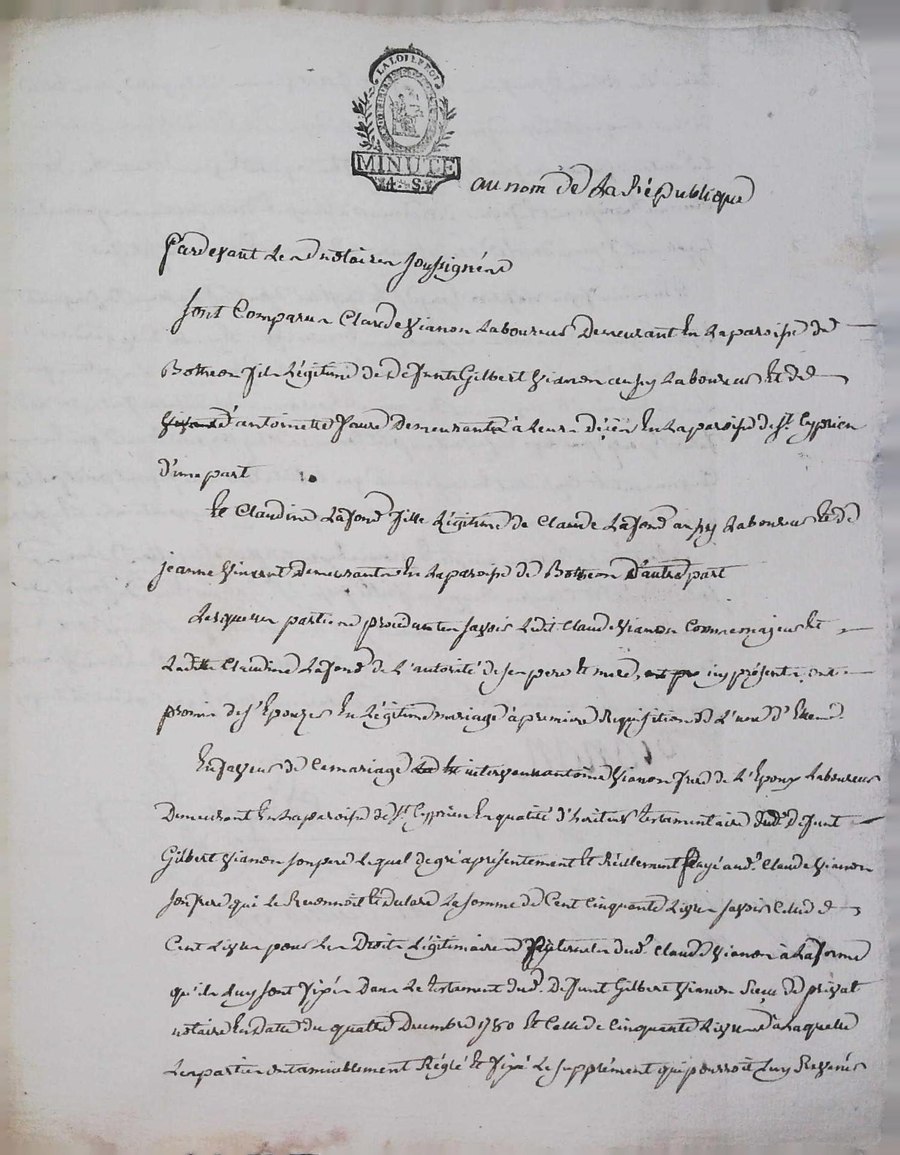 LA LOI LE ROI
MINUTE
4. S.
au nom de La République
Pardevant Les Notaires Soussignés
Sont Comparus Claude Vianon Laboureur Demeurant En La paroisse de
Botheon fils Légitime de Defunts Gilbert Vianon aussy Laboureur Et de
antoinette faure Demeurants à Leurs Décès En La paroisse de St. Cyprien
D'une part
Et Claudine Lafond fille Légitime de Claude Lafond aussy Laboureur Et de
jeanne Vincent Demeurants En La paroisse de Botheon D'autre part
Lesquelles parties procedantes savoir Ledit Claude Vianon Comme majeur Et
Ladite Claudine Lafond de L'autorité de ses pere Et mere, icy présents, ont
promis de s'Epouzer En Légitime mariage à premiere Requisition de L'un d'Eux
En faveur de Ce mariage intervenu antoine Vianon frere de L'Epoux Laboureur
Demeurant En La paroisse de St. Cyprien En qualité d'héritier testamentaire dud. Defunt
Gilbert Vianon son pere Lequel de gré a présentement Et Réellement payé aud. Claude Vianon
son frere qui Le Reconnoit La somme de Cent Cinquante Livres savoir Celle de
Cent Livres pour Les Droits Légitimaires paternels dud. Claude Vianon à La forme
qu'ils Luy sont fixés Dans Le testament dud. Defunt Gilbert Vianon Reçu de privat
notaire En Date du quatre Decembre 1780 Et Celle de Cinquante Livres à Laquelle
Les parties ont amiablement Réglé Et fixé Le supplément qui pourroit Luy Revenir